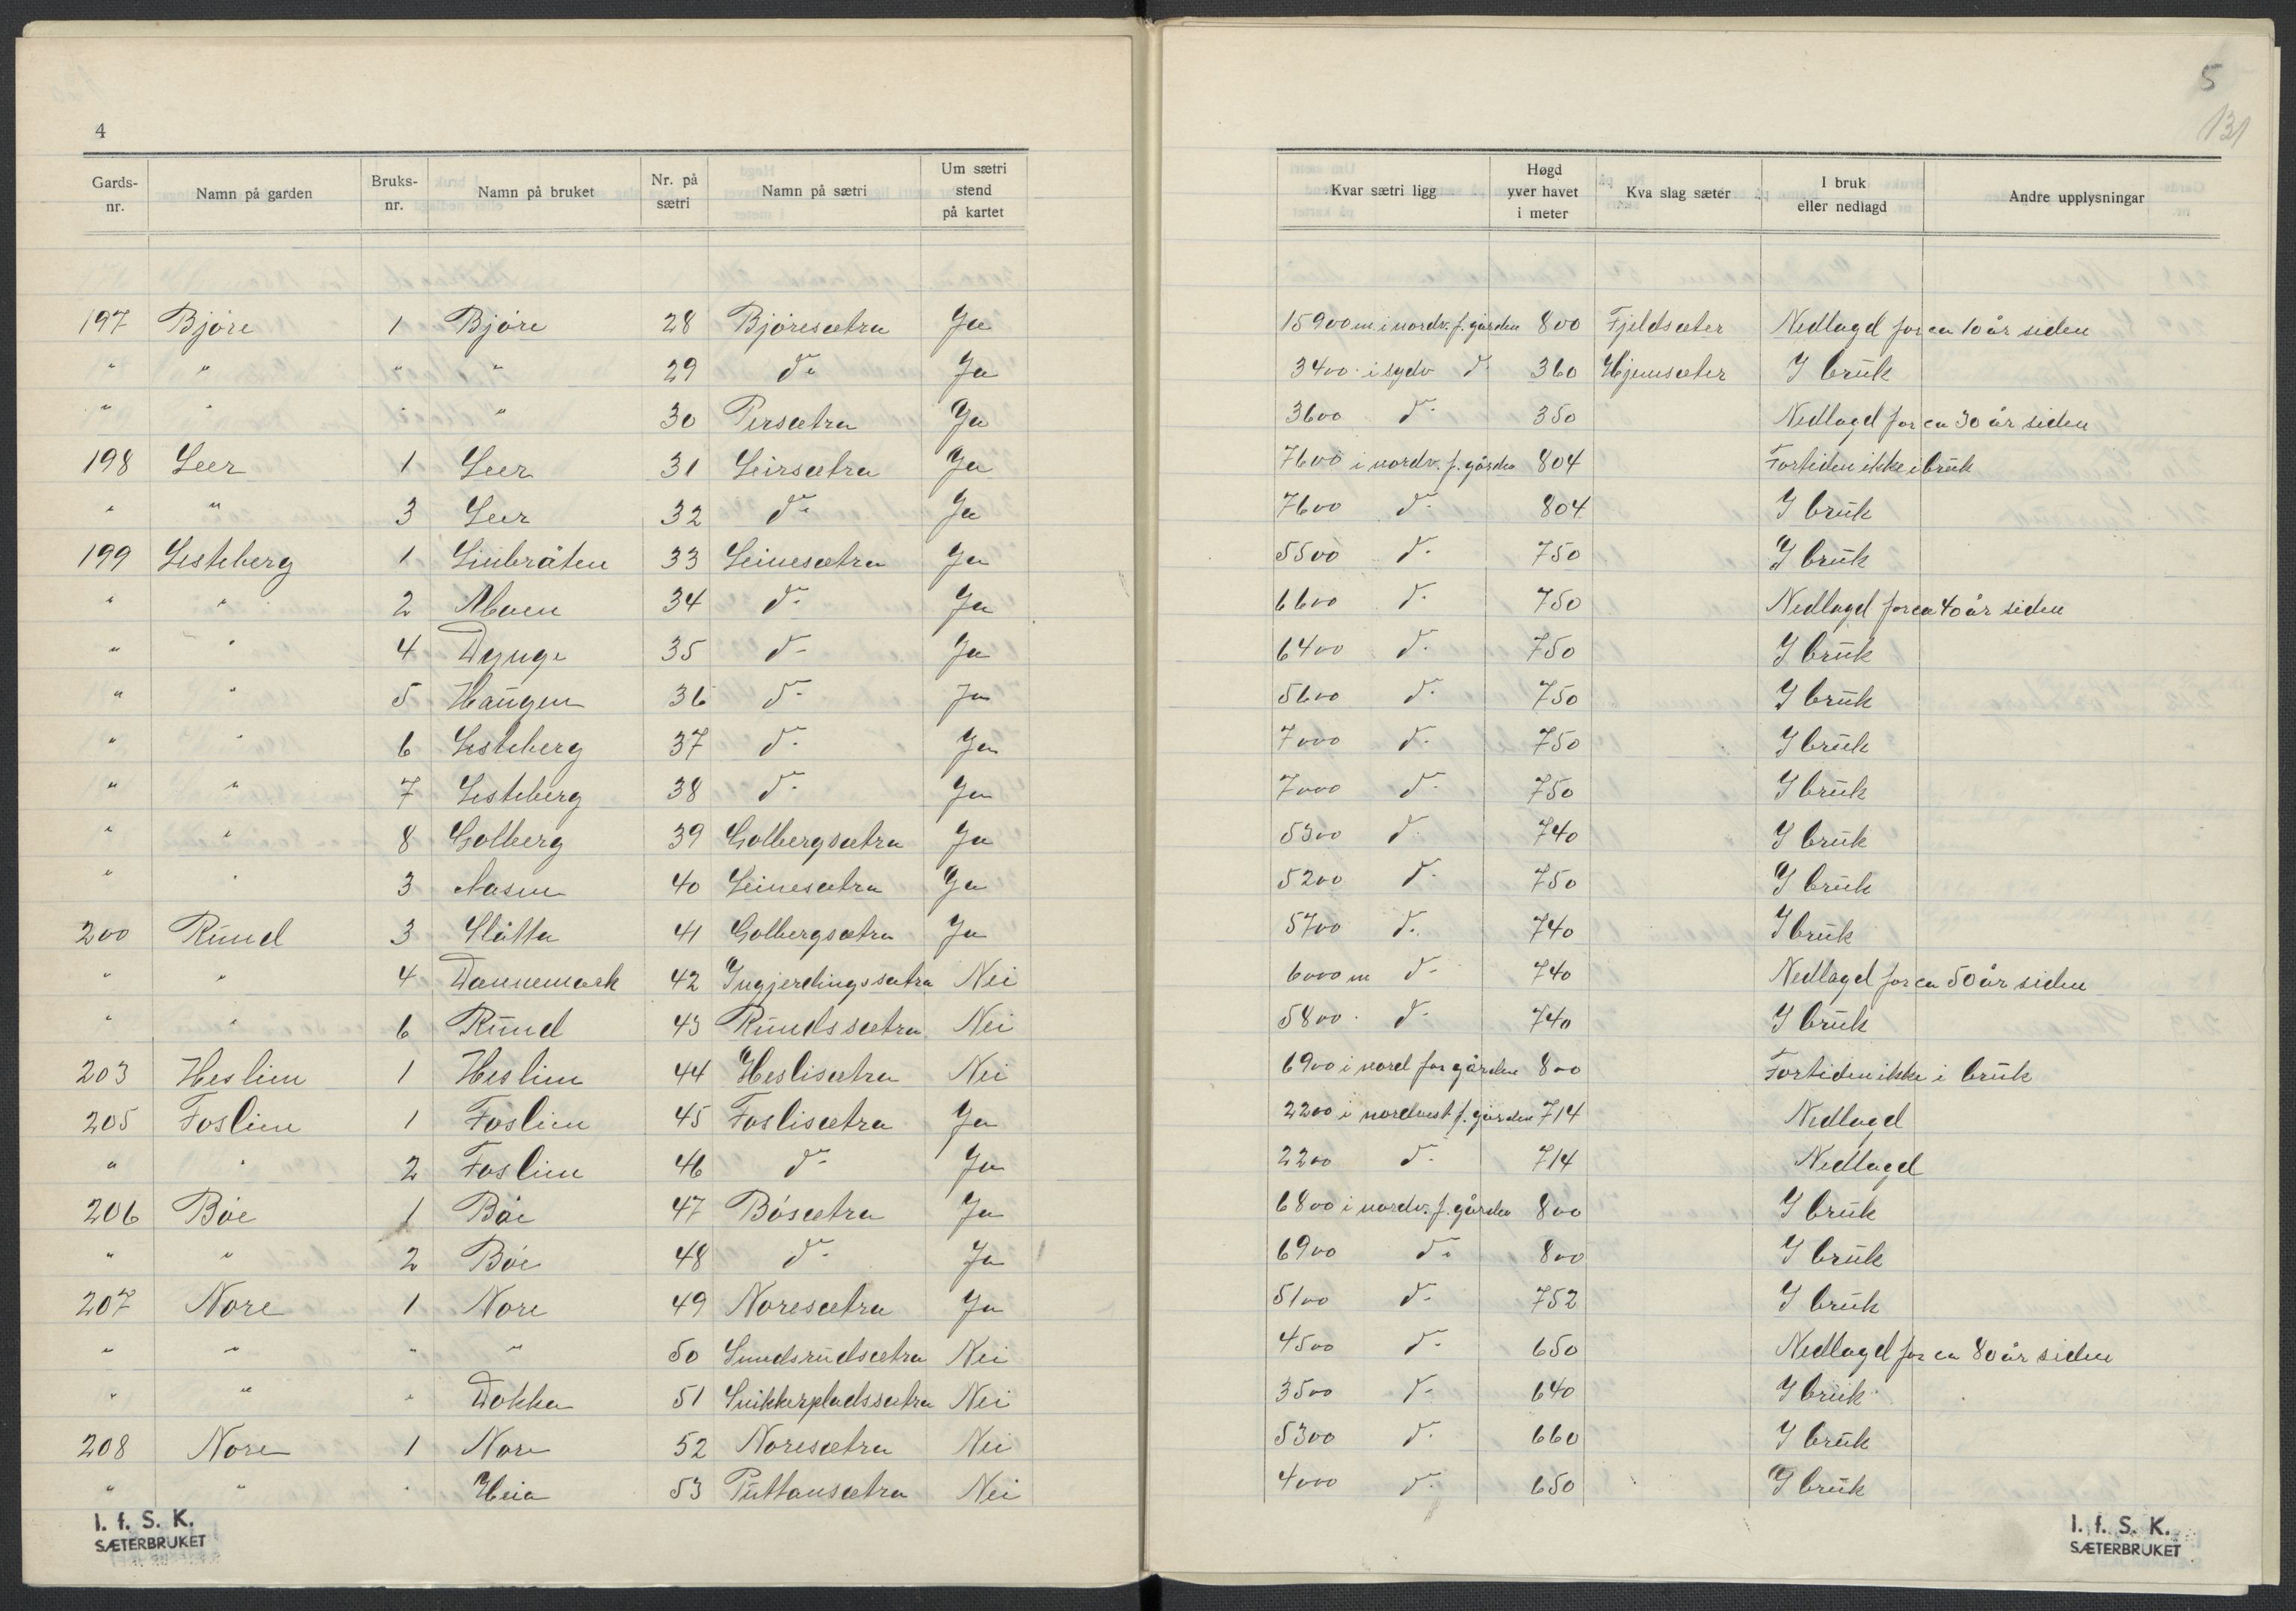 4
Gards-nr. Namn på garden Bruks-nr. Namn på bruket Nr. på sætri Namn på sætri Um sætri stend på kartet
197 Bjøre 1 Bjøre 28 Bjøresætra Ja
" " " " 29 do Ja
" " " " 30 Persætra Ja
198 Leer 1 Leer 31 Leirsætra Ja
" " 3 Leer 32 do Ja
199 Listeberg 1 Linbråten 33 Leinesætra Ja
" " 2 Moen 34 do Ja
" " 4 Dynge 35 do Ja
" " 5 Haugen 36 do Ja
" " 6 Listeberg 37 do Ja
" " 7 Listeberg 38 do Ja
" " 8 Golberg 39 Golbergsætra Ja
" " 3 Aasen 40 Leinesætra Ja
200 Ruud 3 Slåtta 41 Golbergsætra Ja
" " 4 Dannemark 42 Ingjerdingssætra Nei
" " 6 Ruud 43 Ruudssætra Nei
203 Heslien 1 Heslien 44 Heslisætra Nei
205 Foslien 1 Foslien 45 Foslisætra Ja
" " 2 Foslien 46 do Ja
206 Bøe 1 Bøe 47 Bøsætra Ja
" " 2 Bøe 48 do Ja
207 Nore 1 Nore 49 Noresætra Ja
" " " " 50 Smedsrudsætra Nei
" " " Dokka 51 Snikkerpladssætra Nei
208 Nore 1 Nore 52 Noresætra Nei
" " " Heia 53 Puttansætra Nei
I. f. S. K.
SÆTERBRUKET
5
131
Kvar sætri ligg Høgd yver havet i meter Kva slag sæter I bruk eller nedlagd Andre upplysningar
15900 m i nordv. f. gården 800 Fjeldsæter Nedlagd for ca 10 år siden
3400 i sydv do 360 Hjemsæter I bruk
3600 do 350 Nedlagd for ca 30 år siden
7600 i nordv. f. gården 804 Fortiden ikke i bruk
7600 do 804 I bruk
5500 do 750 I bruk
6600 do 750 Nedlagd for ca 40 år siden
6400 do 750 I bruk
5600 do 750 I bruk
7000 do 750 I bruk
7000 do 750 I bruk
5300 do 740 I bruk
5200 do 750 I bruk
5700 do 740 I bruk
6000 m do 740 Nedlagd for ca 50 år siden
5800 do 740 I bruk
6900 i nord for gården 800 Fortiden ikke i bruk
2200 i nordvest f. gården 714 Nedlagd
2200 do 714 Nedlagd
6800 i nordv. f. gården 800 I bruk
6900 do 800 I bruk
5100 do 752 I bruk
4500 do 650 Nedlagd for ca 80 år siden
3500 do 640 I bruk
5300 do 660 I bruk
4000 do 650 I bruk
I. f. S. K.
SÆTERBRUKET